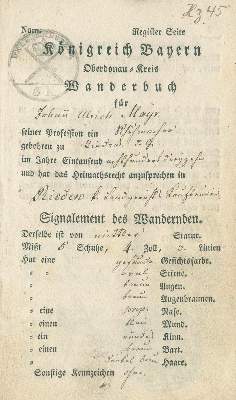 Xz. 45
Num. Register Seite
Königreich Bayern
Oberdonau-Kreis
Wanderbuch
für
Johann Ulrich Mayr
seiner Profession ein Schuhmacher
gebohren zu Rieden
im Jahre Eintausend achthundert
und hat das Heimathsrecht anzusprechen in
Rieden
Signalement des Wandernden.
Derselbe ist von mittler Statur.
Mißt 5 Schuhe, 4 Zoll, Linien
Hat eine gesunde Gesichtsfarbe.
" " oval Stirne.
" " braun Augen.
" " braun Augenbraunen.
" eine Nase.
" einen klein Mund.
" ein rundes Kinn.
" einen braun Bart.
" " dunkel braun Haare.
Sonstige Kennzeichen ohne.